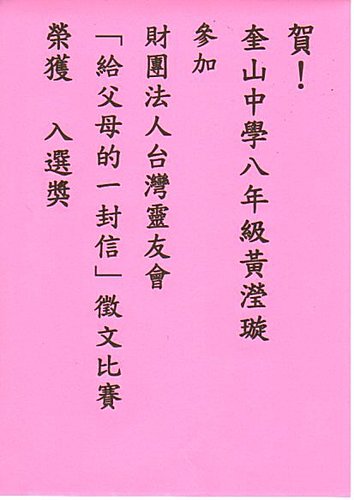 賀！
奎山中學八年級黃瀅璇
參加
財團法人台灣靈友會
「給父母的一封信」徵文比賽
榮獲　入選獎